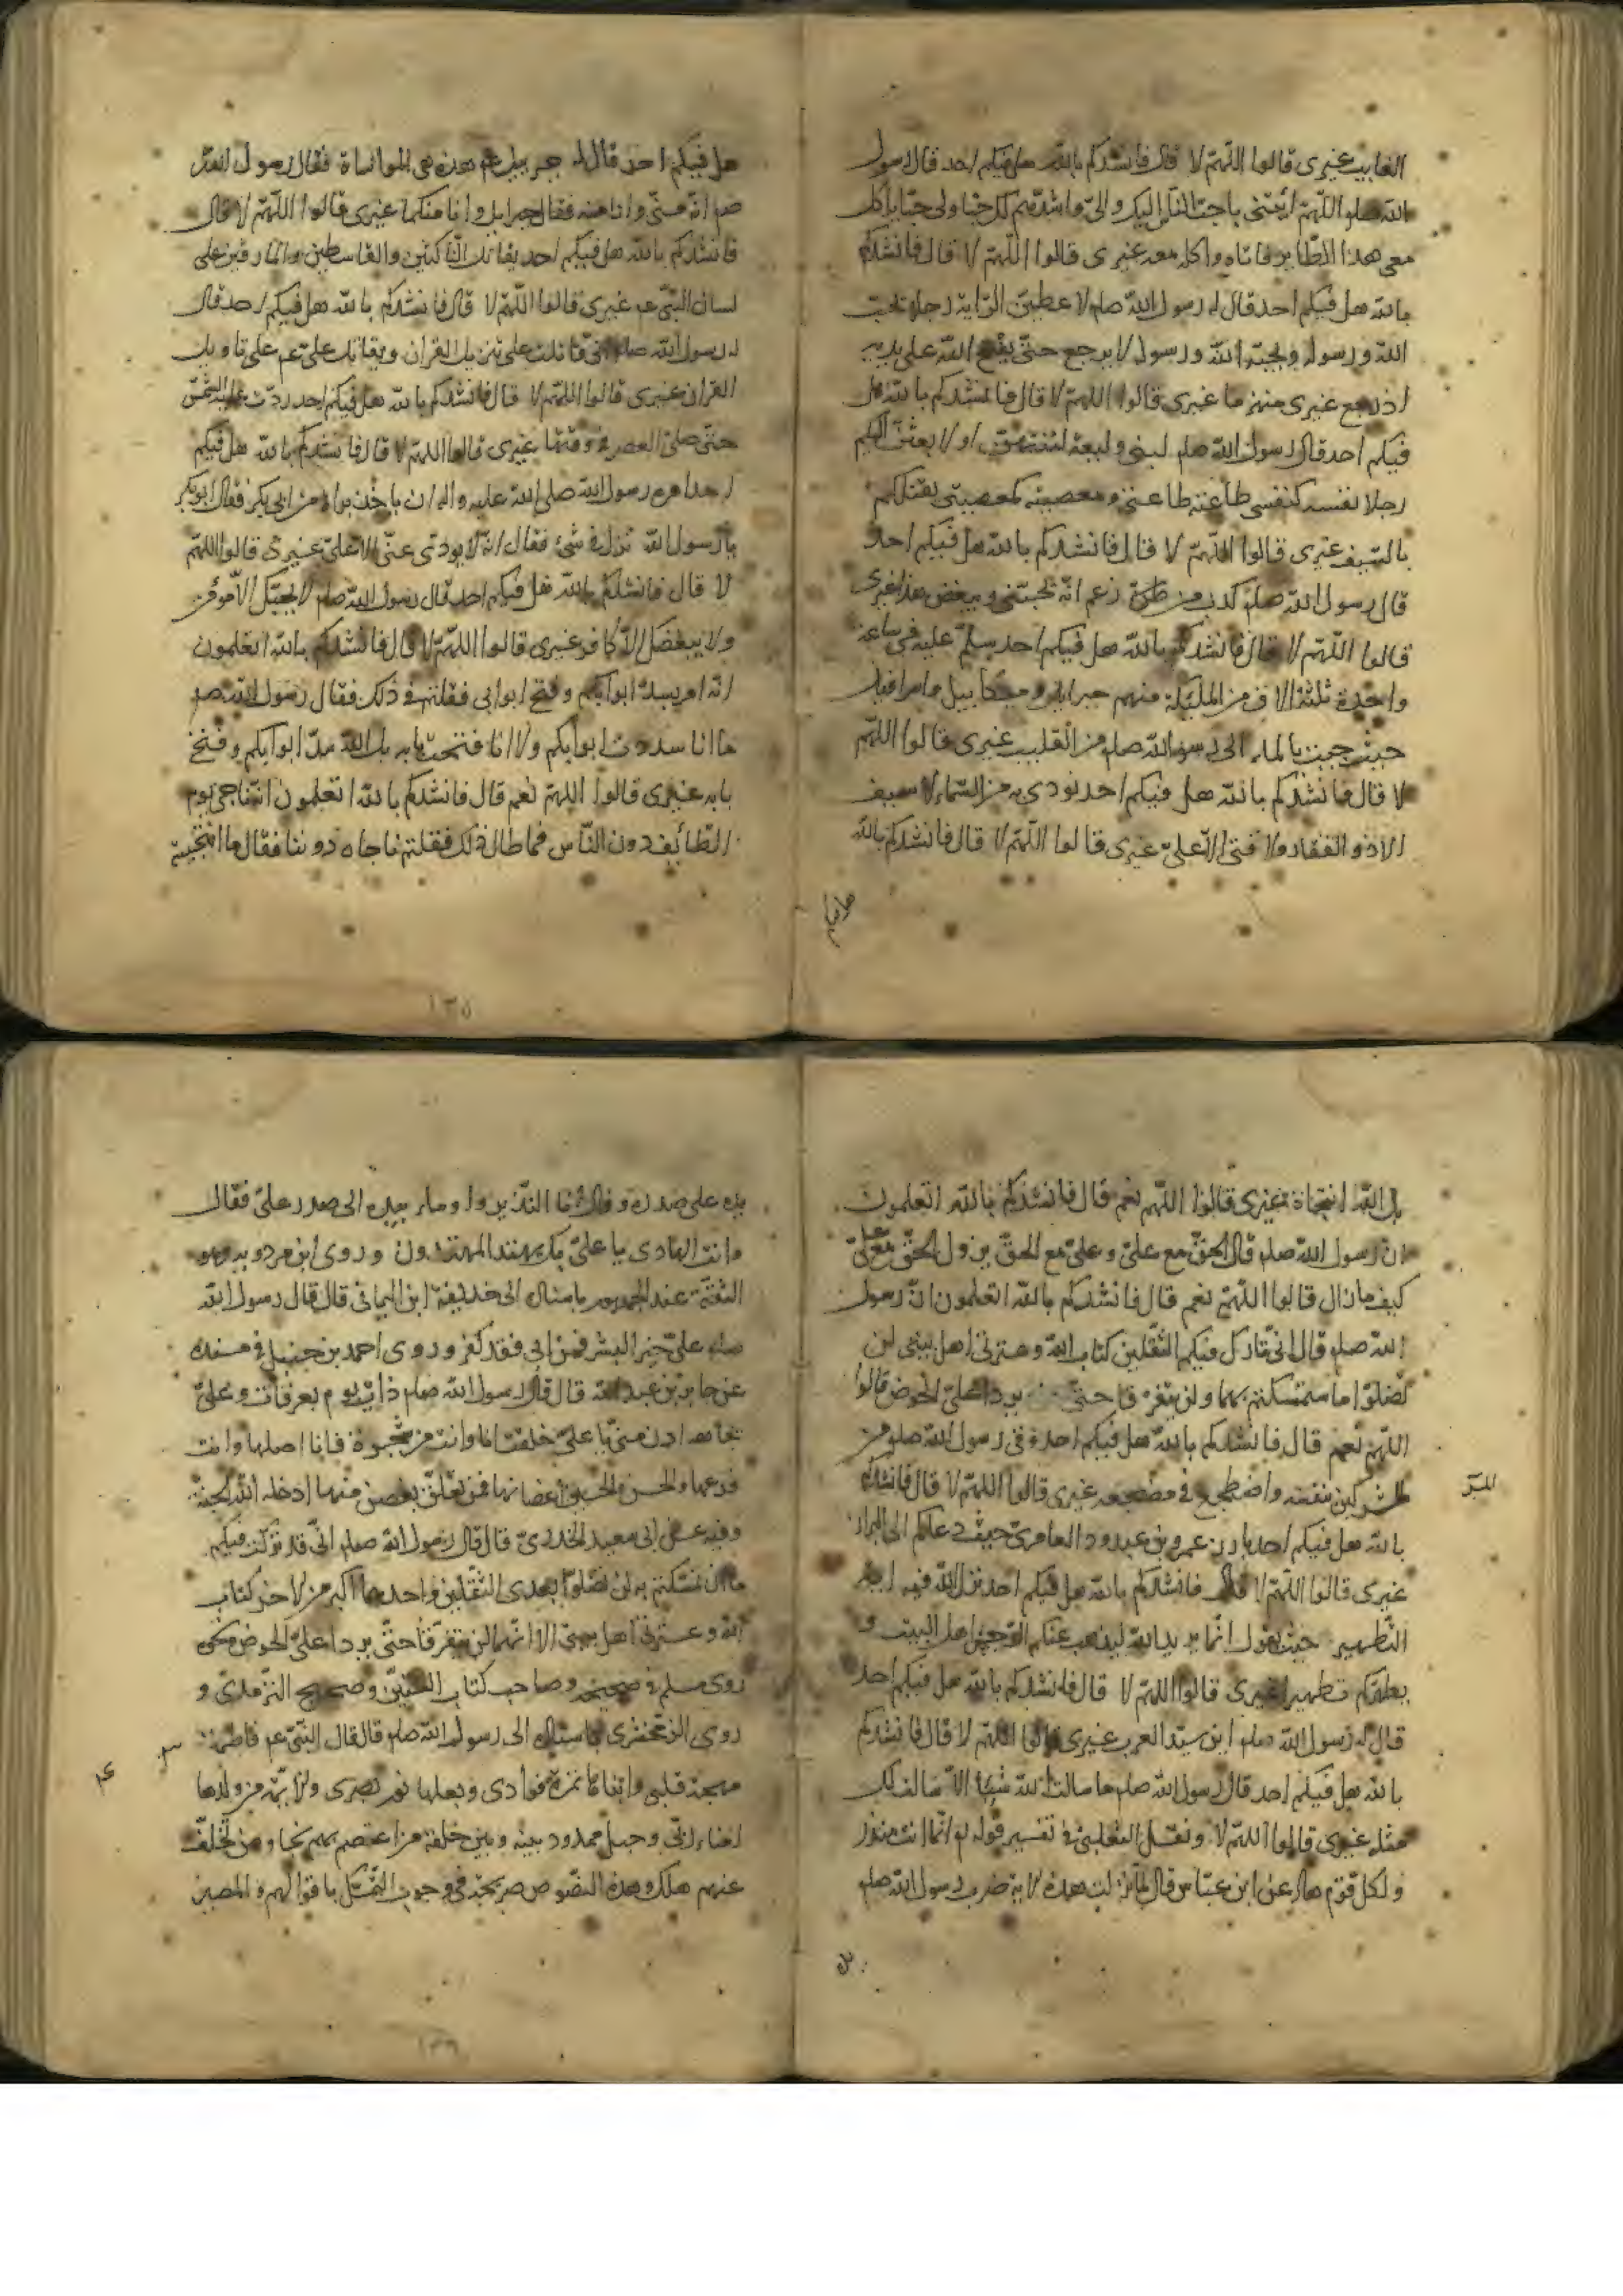 الغايب غيرى قالوا اللّهمّ لا قال فانشدكم بالله هل فيكم احد قال رسول
الله صلم اللّهمّ ائتنى باحبّ الناس اليك والىّ واشدّهم لك حبّا ولى حبّا ياكل
معى هذا الطّاير فاتاه واكل معه غيرى قالوا اللّهمّ لا قال فانشدكم
بالله هل فيكم احد قال له رسول الله صلم لاعطينّ الرّاية رجلا يحبّ
الله ورسوله ويحبّه الله ورسوله لا يرجع حتّى يفتح الله على يديه
اذ رجع غيرى منهزما غيرى قالوا اللّهمّ لا قال فانشدكم بالله هل
فيكم احد قال رسول الله صلم لبنى وليعة لتنتهنّ او لابعثنّ اليكم
رجلا نفسه كنفسى طاعته طاعتى ومعصيته كمعصيتى يقتلكم
بالسّيف غيرى قالوا اللّهمّ لا قال فانشدكم بالله هل فيكم احد
قال رسول الله صلم كذب من زعم انّه يحبّنى ويبغض هذا غيرى
قالوا اللّهمّ لا قال فانشدكم بالله هل فيكم احد سلّم عليه فى ساعة
واحدة ثلثة الاف من الملئكة منهم جبرايل وميكاييل واسرافيل
حيث جيت بالماء الى رسول الله صلم من القليب غيرى قالوا اللّهمّ
لا قال فانشدكم بالله هل فيكم احد نودى به من السّماء لا سيف
الا ذو الفقار ولا فتى الّا علىّ غيرى قالوا اللّهمّ لا قال فانشدكم بالله
هل فيكم
هل فيكم احد قال له جبريل عم هذه هى المواساة فقال رسول الله
صم انّه منّى وانا منه فقال جبرايل وانا منكما غيرى قالوا اللّهمّ لا قال
فانشدكم بالله هل فيكم احد يقاتل النّاكثين والقاسطين والمارقين على
لسان النّبىّ عم غيرى قالوا اللّهمّ لا قال فانشدكم بالله هل فيكم احد قال
له رسول الله صلم انّى قاتلت على تنزيل القران ويقاتل علىّ عم على تاويل
القران غيرى قالوا اللّهمّ لا قال فانشدكم بالله هل فيكم احد ردّت عليه الشّمس
حتّى صلّى العصر فى وقتها غيرى قالوا اللّهمّ لا قال فانشدكم بالله هل فيكم
احد امره رسول الله صلى الله عليه واله ان ياخذ براءة من ابى بكر فقال ابوبكر
يا رسول الله نزل فىّ شئ فقال انّه لا يودّى عنّى الا علىّ غيرى قالوا اللّهمّ
لا قال فانشدكم بالله هل فيكم احد قال رسول الله صلم لا يحبّك الّا مؤمن
ولا يبغضك الّا كافر غيرى قالوا اللّهمّ لا قال فانشدكم بالله اتعلمون
انّه امر بسدّ ابوابكم وفتح ابوابى فقلتم فى ذلك فقال رسول الله صم
ما انا سددت ابوابكم ولا انا فتحت بابه بل الله سدّ ابوابكم وفتح
بابه غيرى قالوا اللهمّ نعم قال فانشدكم بالله اتعلمون انّه ناجى يوم
الطّائف دون النّاس فما طال ذلك فقلتم ناجاه دوننا فقال ما انتجيته
١٣٥
بل الله انتجاه غيرى قالوا اللّهمّ نعم قال فانشدكم بالله اتعلمون
انّ رسول الله صلم قال الحقّ مع علىّ وعلىّ مع الحقّ يزول الحقّ مع علىّ
كيف ما زال قالوا اللّهمّ نعم قال فانشدكم بالله اتعلمون انّ رسول
الله صلم قال انّى تارك فيكم الثّقلين كتاب الله وعترتى اهل بيتى لن
تضلّوا ما ستمسكتم بهما ولن يفترقا حتّى يردا علىّ الحوض قالوا
اللّهمّ نعم قال فانشدكم بالله هل فيكم احد وقى رسول الله صلم من
المشركين بنفسه واضطجع فى مضجعه غيرى قالوا اللّهمّ لا قال فانشدكم
بالله هل فيكم احد بارز عمرو بن عبدود العامرىّ حيث دعاكم الى البراز
غيرى قالوا اللّهمّ لا قال فانشدكم بالله هل فيكم احد نزل الله فيه اية
التّطهير حيث يقول انّما يريد الله ليذهب عنكم الرّجس اهل البيت و
يطهّركم تطهيرا غيرى قالوا اللّهمّ لا قال فانشدكم بالله هل فيكم احد
قال له رسول الله صلم اين سيّد العرب غيرى قالوا اللّهمّ لا قال فانشدكم
بالله هل فيكم احد قال رسول الله صلم ما سالت الله شيئا الّا سالت لك
مثله غيرى قالوا اللّهمّ لا ونقل الثّعلبىّ فى تفسير قوله تع انّما انت منذر
ولكلّ قوم هاد عن ابن عبّاس قال لمّا نزلت هذه الاية ضرب رسول الله صلم
يده على صدره وقال انا المنذر واومأ بيده الى صدر علىّ فقال
وانت الهادى يا علىّ بك يهتدى المهتدون وروى ابن مردويه وهو
الثقة عند الجمهور باسناده الى حذيفة ابن اليمانى قال قال رسول الله
صلم علىّ خير البشر فمن ابى فقد كفر وروى احمد بن حنبل فى مسنده
عن جابر بن عبدالله قال قال رسول الله صلم ذات يوم بعرفات وعلىّ
تجاهه ادن منّى يا علىّ خلقت انا وانت من شجرة فانا اصلها وانت
فرعها والحسن والحسين اغصانها فمن تعلّق بغصن منها ادخله الله الجنّة
وفيه عن ابى سعيد الخدرىّ قال قال رسول الله صلم انّى قد تركت فيكم
ما ان تمسّكتم به لن تضلّوا بعدى الثّقلين واحدهما اكبر من الاخر كتاب
الله وعترتى اهل بيتى الا انّهما لن يفترقا حتّى يردا علىّ الحوض
روى مسلم فى صحيحه وصاحب كتاب السّنن وصحيح التّرمذىّ و
روى الزمخشرى باسناده الى رسول الله صلم قال قال النّبىّ عم فاطمة
مهجة قلبى وابناها ثمرة فوادى وبعلها نور بصرى والائمّة من ولدها
امناء ربّى وحبل ممدود بينه وبين خلقه من اعتصم بهم نجا ومن تخلّف
عنهم هلك وهذه النصّوص صريحة فى وجوب التّمسّك باقوالهم والمصير
١٣٦